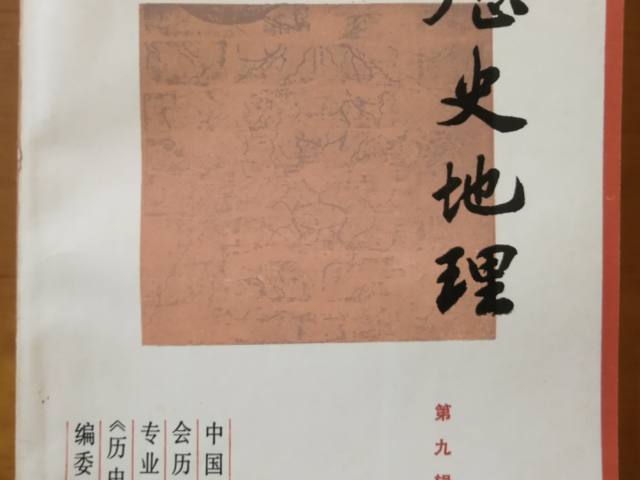 史地理
第九辑
中国
会历
专业
《历史
编委